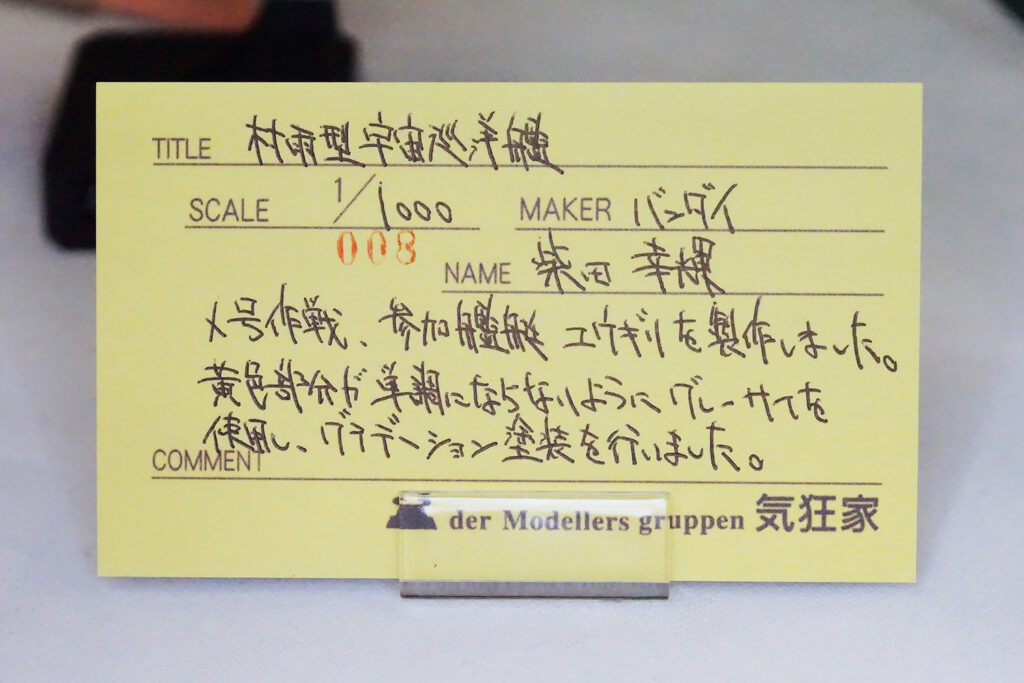 TITLE 村雨型宇宙巡洋艦
SCALE 1/1000 MAKER バンダイ
008
NAME 柴田 幸輝
メ号作戦、参加艦艇 ユウギリを製作しました。
黄色部分が単調にならないように グレーサフを
使用し、グラデーション塗装を行いました。
COMMENT
der Modellers gruppen 気狂家